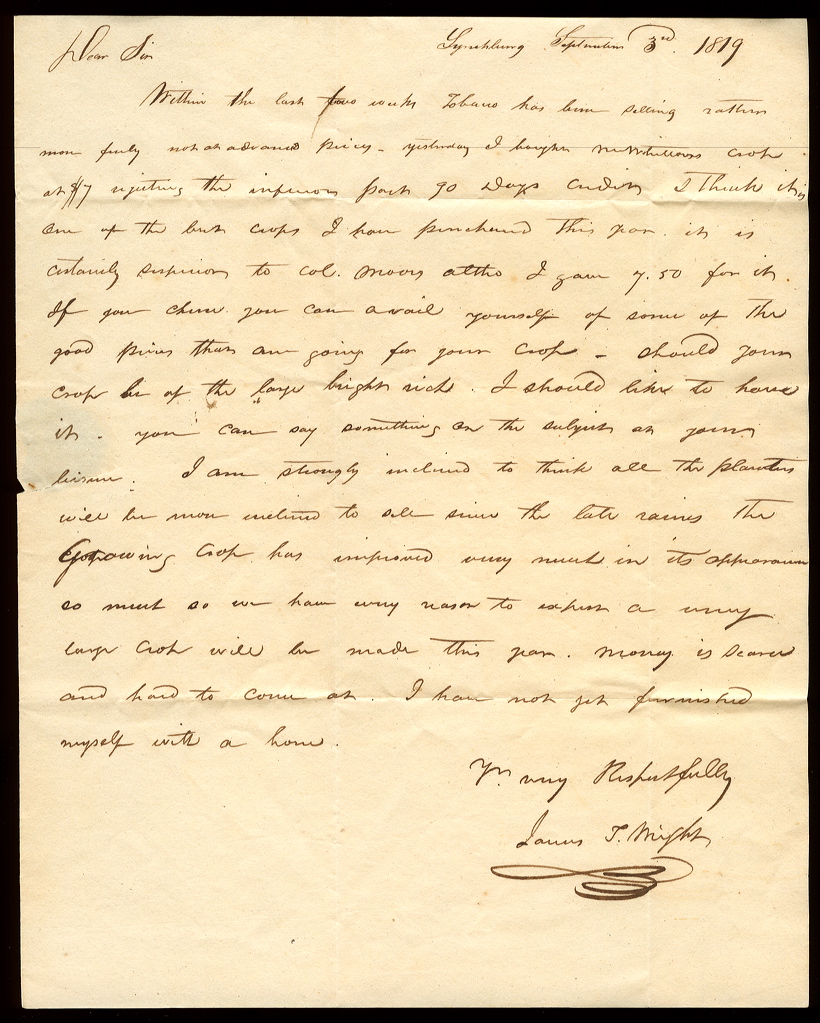 Lynchburg September 3rd. 1819
Dear Sir
Within the last few weeks Tobacco has been selling rather
more freely not at advanced prices - yesterday I bought crop
at $7 rejecting the inferior part 90 Days credit I think it is
one of the best crops I have purchased this year. it is
certainly superior to col. Moors altho I gave 7.50 for it.
If you chuse you can avail yourself of some of the
good prices that are going for your Crop - should your
crop be of the large bright rich. I should like to have
it. you can say something on the subject at your
leisure. I am strongly inclined to think all the planters
will be more inclined to sell since the late raines the
Growing Crop has improved very much in its appearance
so much so we have every reason to expect a very
large Crop will be made this year. Money is scarce
and hard to come at. I have not yet furnished
myself with a horse.
Yr. very Respectfully
James T. Wright